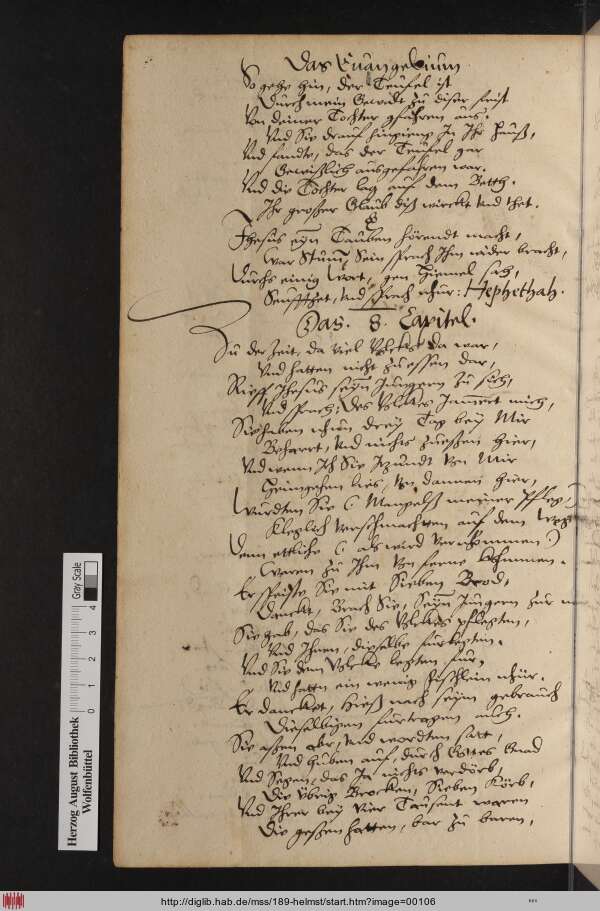 Das Euangelium
So gehe hin, der Teufel ist
Durch mein Gewalt zu diser frist
Von deiner Tochter gfahren aus.
Vnd Sie drauf hingieng In Ihr Hauß,
Vnd fandte, das der Teufel gar
Gewißlich ausgefahren war.
Vnd die Tochter lag auf dem Betth.
Ihr großer Glaub diß wirckt vnd thet.
Jhesus eyn Tauben hörendt macht,
War Stum, Sein sprach Ihm wider bracht,
Durchs einig Wort, gen Himel sich,
Seufftzet, vnd sprach nhur: Hephethah.
Das. 8. Capitel.
Zu der Zeit, da viel Volckes da war,
Vnd hatten nicht zu essen dar,
Rieff Jhesus seyn Jungern zu sich,
Vnd sprach, des Volckes Jammert mich,
Sie haben nhun drey Tag bey Mir
Beharrt, vnd nichts zuessen hier,
Vnd wenn Ich Sie Itzundt von Mir
Heimgehen lies, von dannen hier,
Wurdten Sie (Mangelß meiner Pfleg)
Kleglich verschmachten auf dem Weg
Denn ettliche (als wird vernhommen)
Waren zu Ihm von ferne khommen.
Er speiste Sie mit Sieben Brod,
Danckt, Brach Sie, Seyn Jungern zur
Sie gab, das Sie des Volckes pflegten,
Vnd Ihnen, dieselbe furlegten.
Vnd Sie dem Volcke legten fur,
Vnd hattn ein wenig Fischlein nhur.
Er dancket, hieß nach seym gebrauch
Dieselbigen furtragen auch.
Sie assen aber, vnd wordten satt,
Vnd huben auf, durch Gottes Gnad
Vnd Segen, das Ja nichts verdörb,
Die vbrig Brocken, Sieben Körb,
Vnd Ihrer bey Vier Tausent waren
Die gessen hatten, bar zu baren,
Herzog August Bibliothek
Wolfenbüttel
Gray Scale
0 1 2 3 4
http://diglib.hab.de/mss/189-helmst/start.htm?image=00106